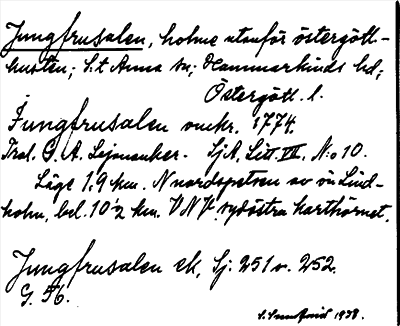 Jungfrusalen, holme utanför östergött-
kusten; S:t Anna sn; Hammarkinds hd;
Östergötl. l.
Jungfrusalen omkr. 1774.
Trol. G. A. Lejonanker. SjA, Litt. VII. N:o 10.
Läge 1,9 km. N nordspetsen av ön Lind-
holm, bel. 10 ½ km. VNV. sydöstra karthörnet.
Jungfrusalen ek, Sj: 251 v. 252.
G. 56.
1938.